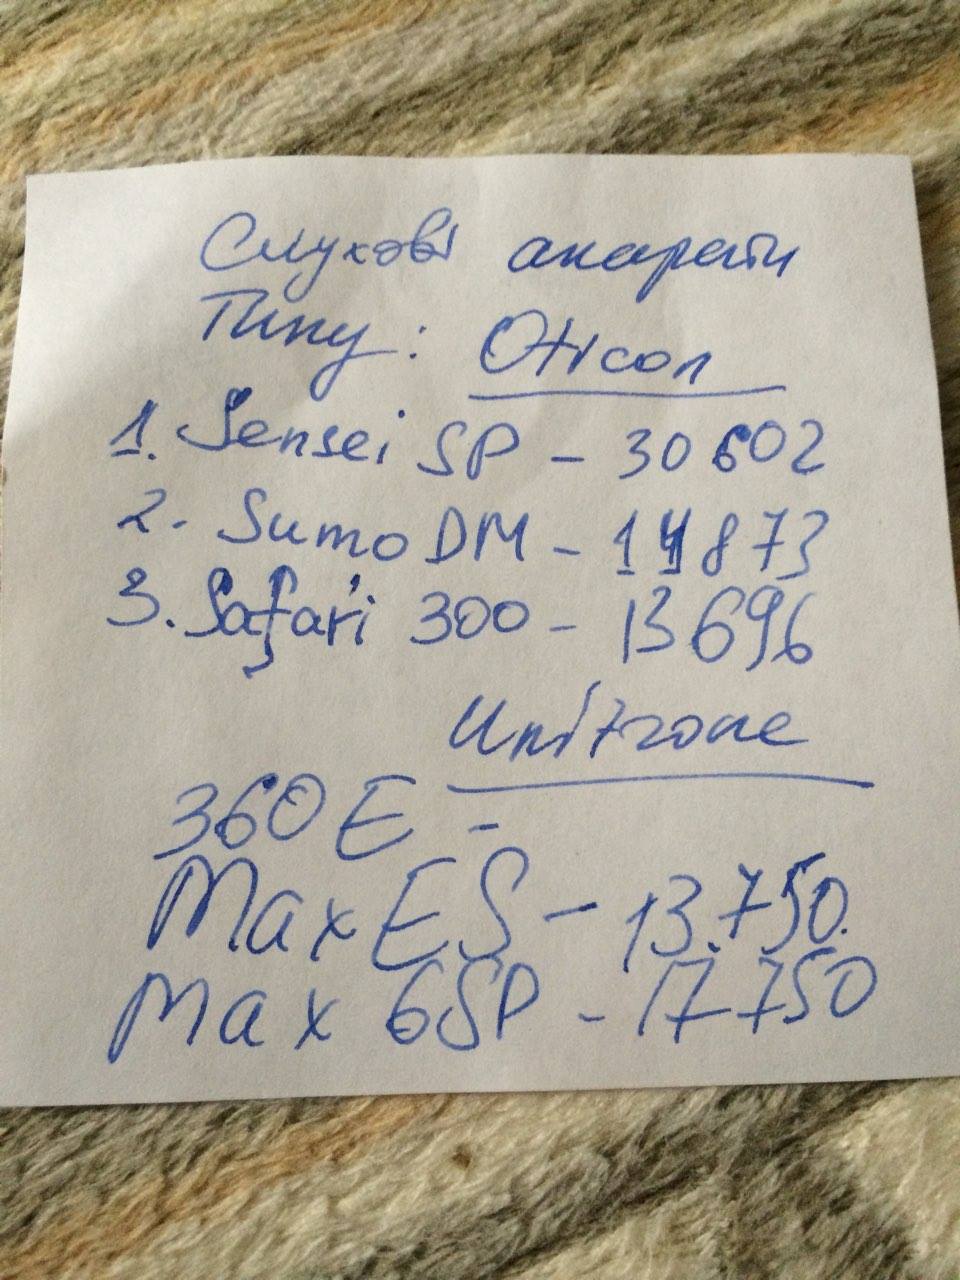 Слухові апарати
Типу: Oticon
1. Sensei SP - 30602
2. Sumo DM - 14873
3. Safari 300 - 13696
Unitrone
360 E -
Max ES - 13.750.
Max 6SP - 17750